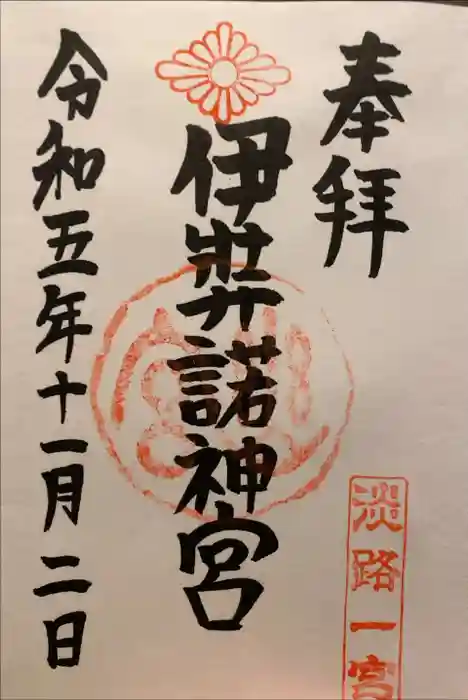 奉拝
淡路一宮
伊弉諾神宮
令和五年十一月二日